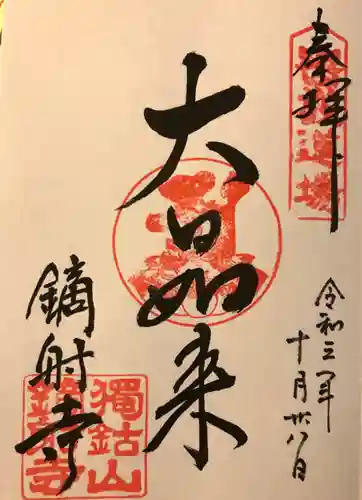 奉拝
大日如来
令和三年
十月廿八日
鏑射寺
獨鈷山
鏑射寺